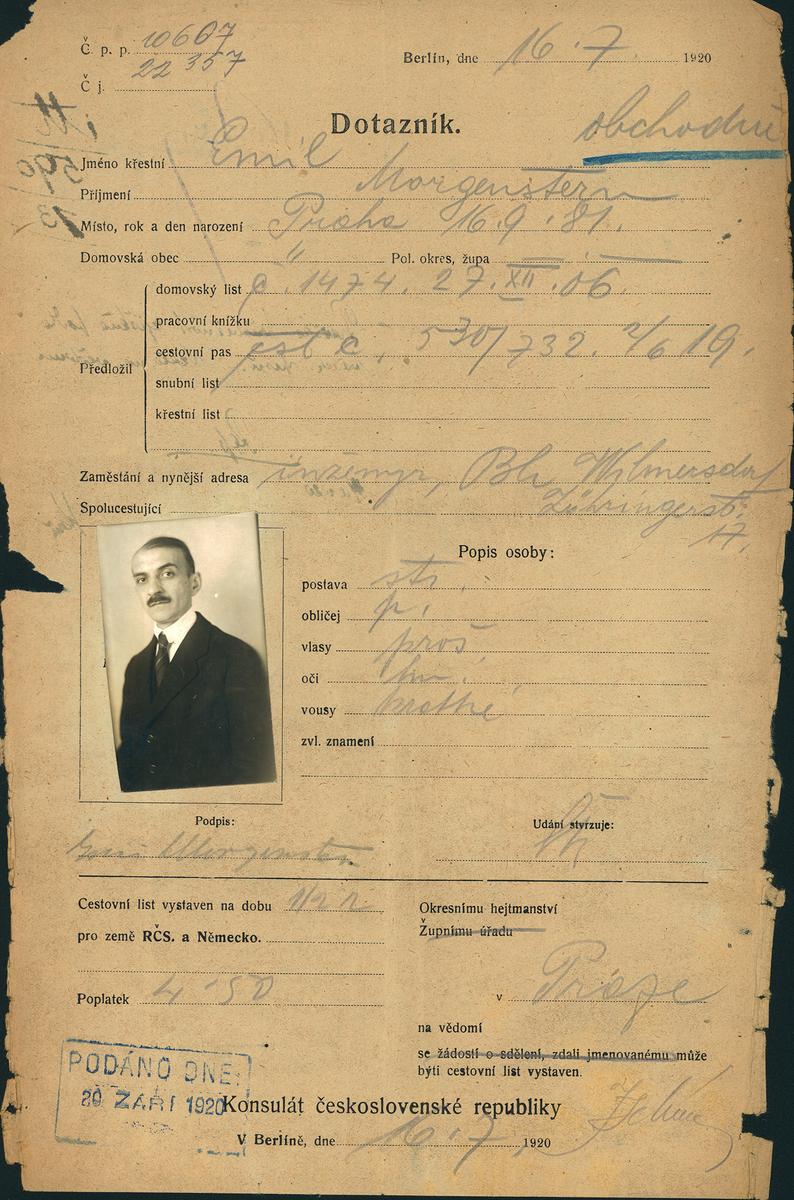 Č. p. p. 10607
22357
Č j.
Berlín, dne 16.7 1920
Dotazník.
obchodní
Jméno křestní Emil
Příjmení Morgenstern
Místo, rok a den narození Praha 16.9.81.
Domovská obec " Pol. okres, župa
Předložil
domovský list č. 1474. 27.XII.06.
pracovní knížku
cestovní pas č. 530/732. 2/6 19.
snubní list
křestní list
Zaměstání a nynější adresa inženýr, Bln Wilmersdorf
Spolucestující Zähringerstr.
17.
Popis osoby:
postava stř.
obličej p.
vlasy proš.
oči hn.
vousy krátké
zvl. znamení
Podpis:
Emil Morgenstern
Udání stvrzuje:
Cestovní list vystaven na dobu 1/2 r.
pro země RČS. a Německo.
Poplatek 4·50
Okresnímu hejtmanství
Župnímu úřadu
v Praze
na vědomí
se žádostí o sdělení, zdali jmenovanému může
býti cestovní list vystaven.
PODÁNO DNE:
20 ZÁŘÍ 1920
Konsulát československé republiky
V Berlíně, dne 16.7. 1920